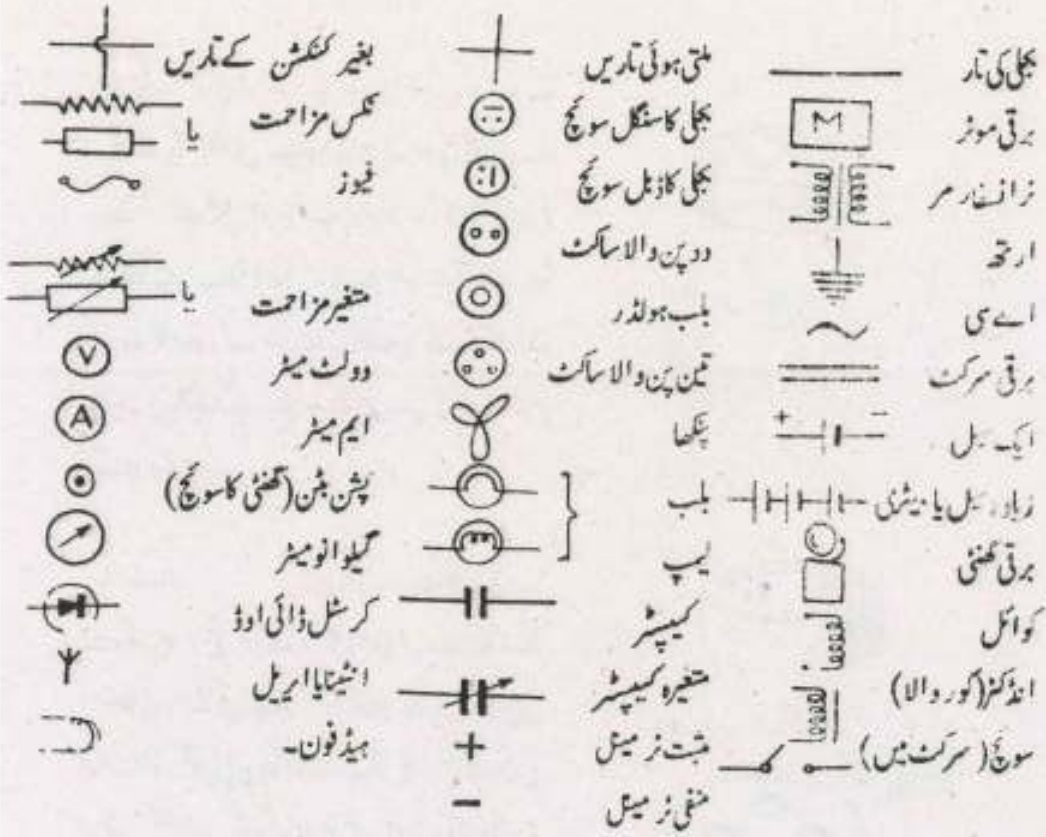 بجلی کی تار
برقی موٹر
M
ٹرانسفارمر
ارتھ
اے سی
برقی سرکٹ
ایک سیل
+ −
زیادہ سیل یا بیٹری
برقی گھنٹی
کوائل
انڈکٹر (کور والا)
سوئچ (سرکٹ میں)
ملتی ہوئی تاریں
بجلی کا سنگل سوئچ
بجلی کا ڈبل سوئچ
دو پن والا ساکٹ
بلب ہولڈر
تین پن والا ساکٹ
پنکھا
بلب
لیمپ
کیپسٹر
متغیرہ کیپسٹر
مثبت ٹرمینل +
منفی ٹرمینل −
بغیر کنکشن کے تاریں
فکس مزاحمت یا
فیوز
متغیر مزاحمت یا
وولٹ میٹر V
ایم میٹر A
پشن بٹن (گھنٹی کا سوئچ)
گیلوانومیٹر
کرسٹل ڈائی اوڈ
انٹینا یا ایریل
ہیڈ فون۔